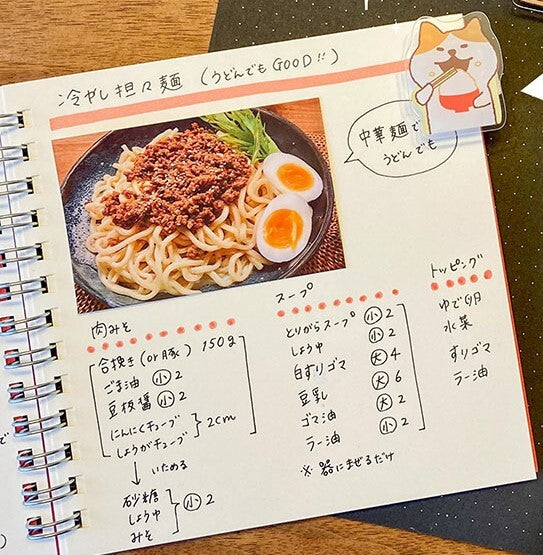 冷やし担々麺 (うどんでもGOOD!!)
中華麺で
うどんでも
肉みそ
合挽き(or豚) 150g
ごま油 小2
豆板醤 小2
にんにくチューブ
しょうがチューブ } 2cm
↓ いためる
砂糖
しょうゆ } 小2
みそ
スープ
とりがらスープ 小2
しょうゆ 小2
白すりゴマ 大4
豆乳 大6
ゴマ油 大2
ラー油 小2
※ 器にまぜるだけ
トッピング
ゆで卵
水菜
すりゴマ
ラー油
で